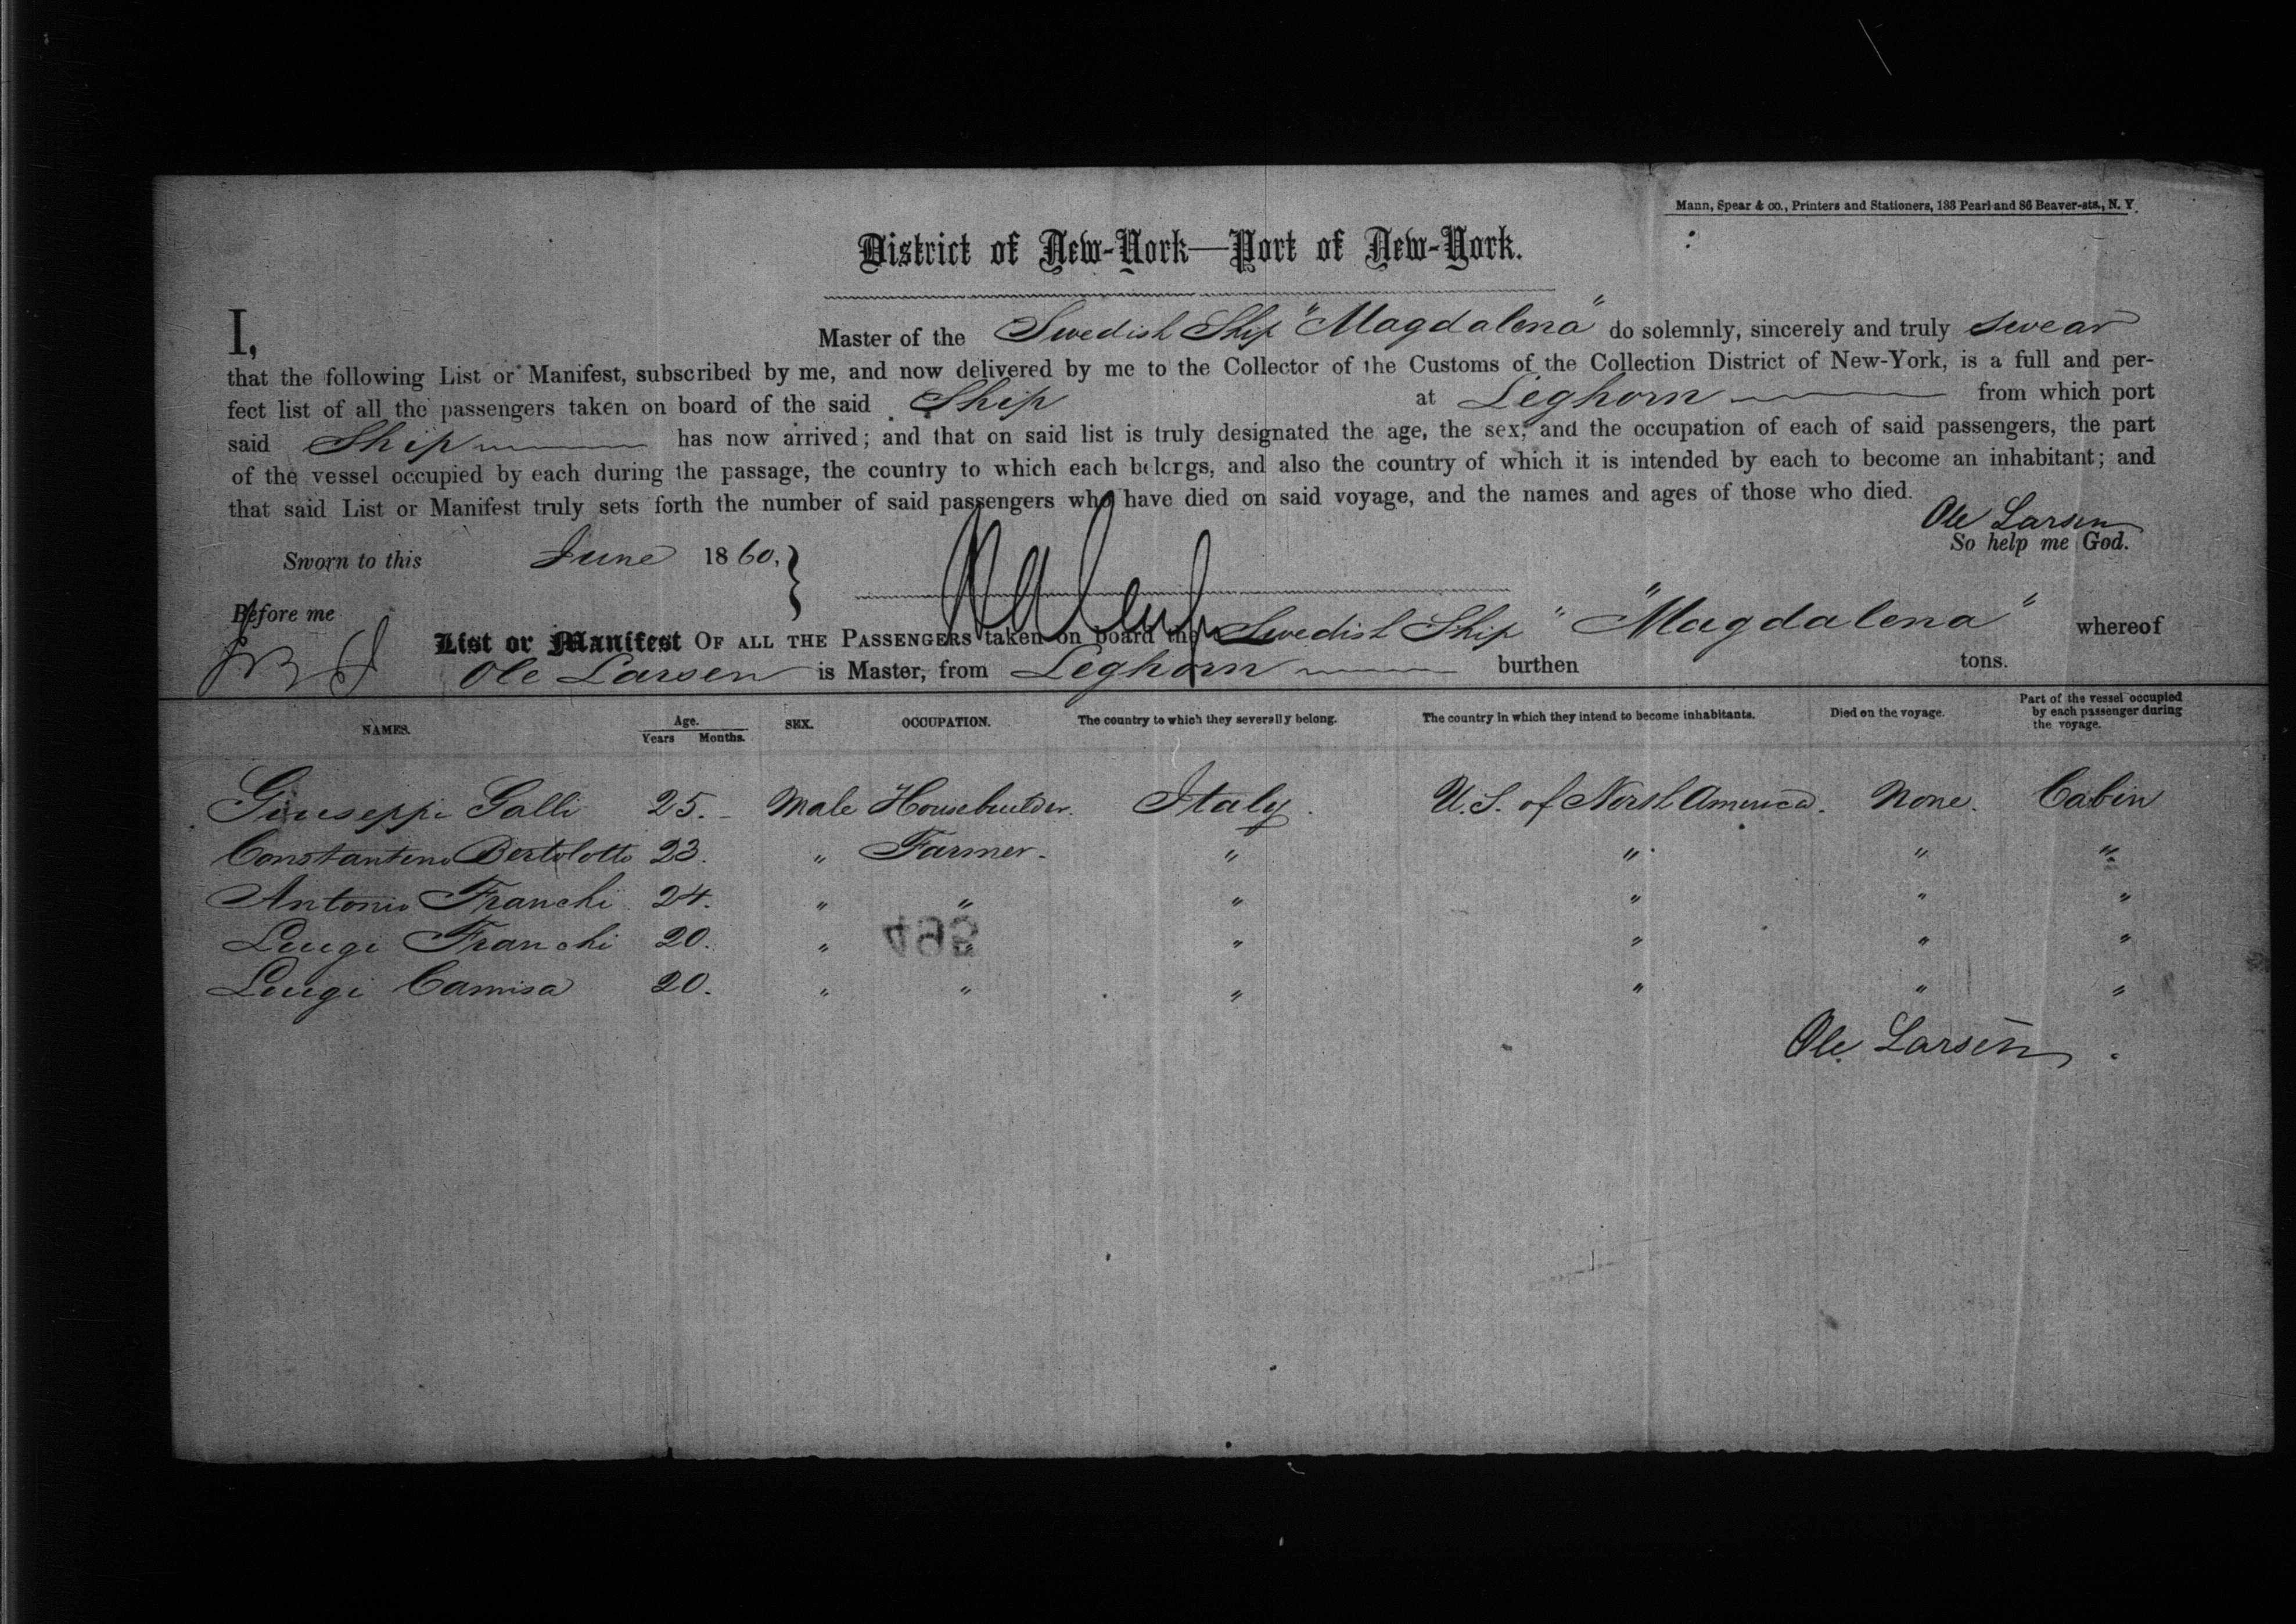 Mann, Spear & co., Printers and Stationers, 133 Pearl and 86 Beaver-sts., N. Y.
District of New-York—Port of New-York.
I, Master of the Swedish Ship "Magdalena" do solemnly, sincerely and truly swear
that the following List or Manifest, subscribed by me, and now delivered by me to the Collector of the Customs of the Collection District of New-York, is a full and per-
fect list of all the passengers taken on board of the said Ship at Leghorn from which port
said Ship has now arrived; and that on said list is truly designated the age, the sex, and the occupation of each of said passengers, the part
of the vessel occupied by each during the passage, the country to which each belongs, and also the country of which it is intended by each to become an inhabitant; and
that said List or Manifest truly sets forth the number of said passengers who have died on said voyage, and the names and ages of those who died.
Ole Larsen
So help me God.
Sworn to this June 1860,
Before me
List or Manifest OF ALL THE PASSENGERS taken on board the Swedish Ship " "Magdalena" whereof
Ole Larsen is Master, from Leghorn burthen tons.
NAMES. Age. Years Months. SEX. OCCUPATION. The country to which they severally belong. The country in which they intend to become inhabitants. Died on the voyage. Part of the vessel occupied by each passenger during the voyage.
Giuseppi Galli 25. Male Housebuilder. Italy. U.S. of North America. None. Cabin
Constantino Bertolotto 23. " Farmer. " " " "
Antonio Franchi 24. " " " " " "
Luigi Franchi 20. " " " " " "
Luigi Camisa 20. " " " " " "
Ole Larsen